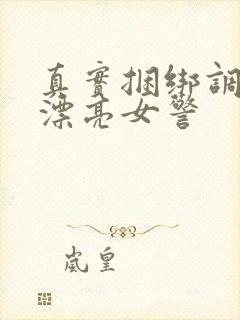 真實捆绑調
漂亮女警
嵐皇